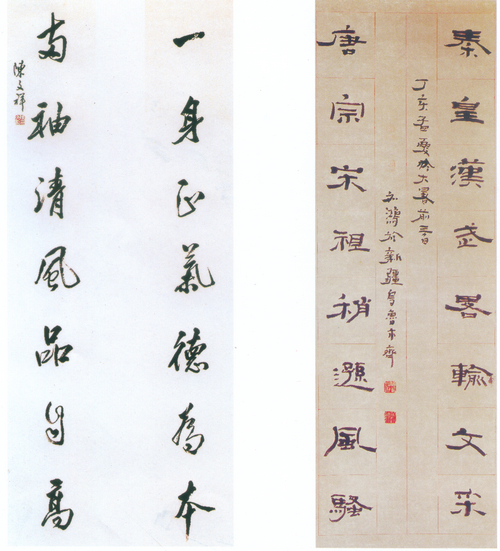 一身正氣德為本
兩袖清風品自高
陳文祥
秦皇漢武畧輸文采
唐宗宋祖稍遜風騷
丁亥夏於大暑前三日
文鴻於新疆烏魯木齊